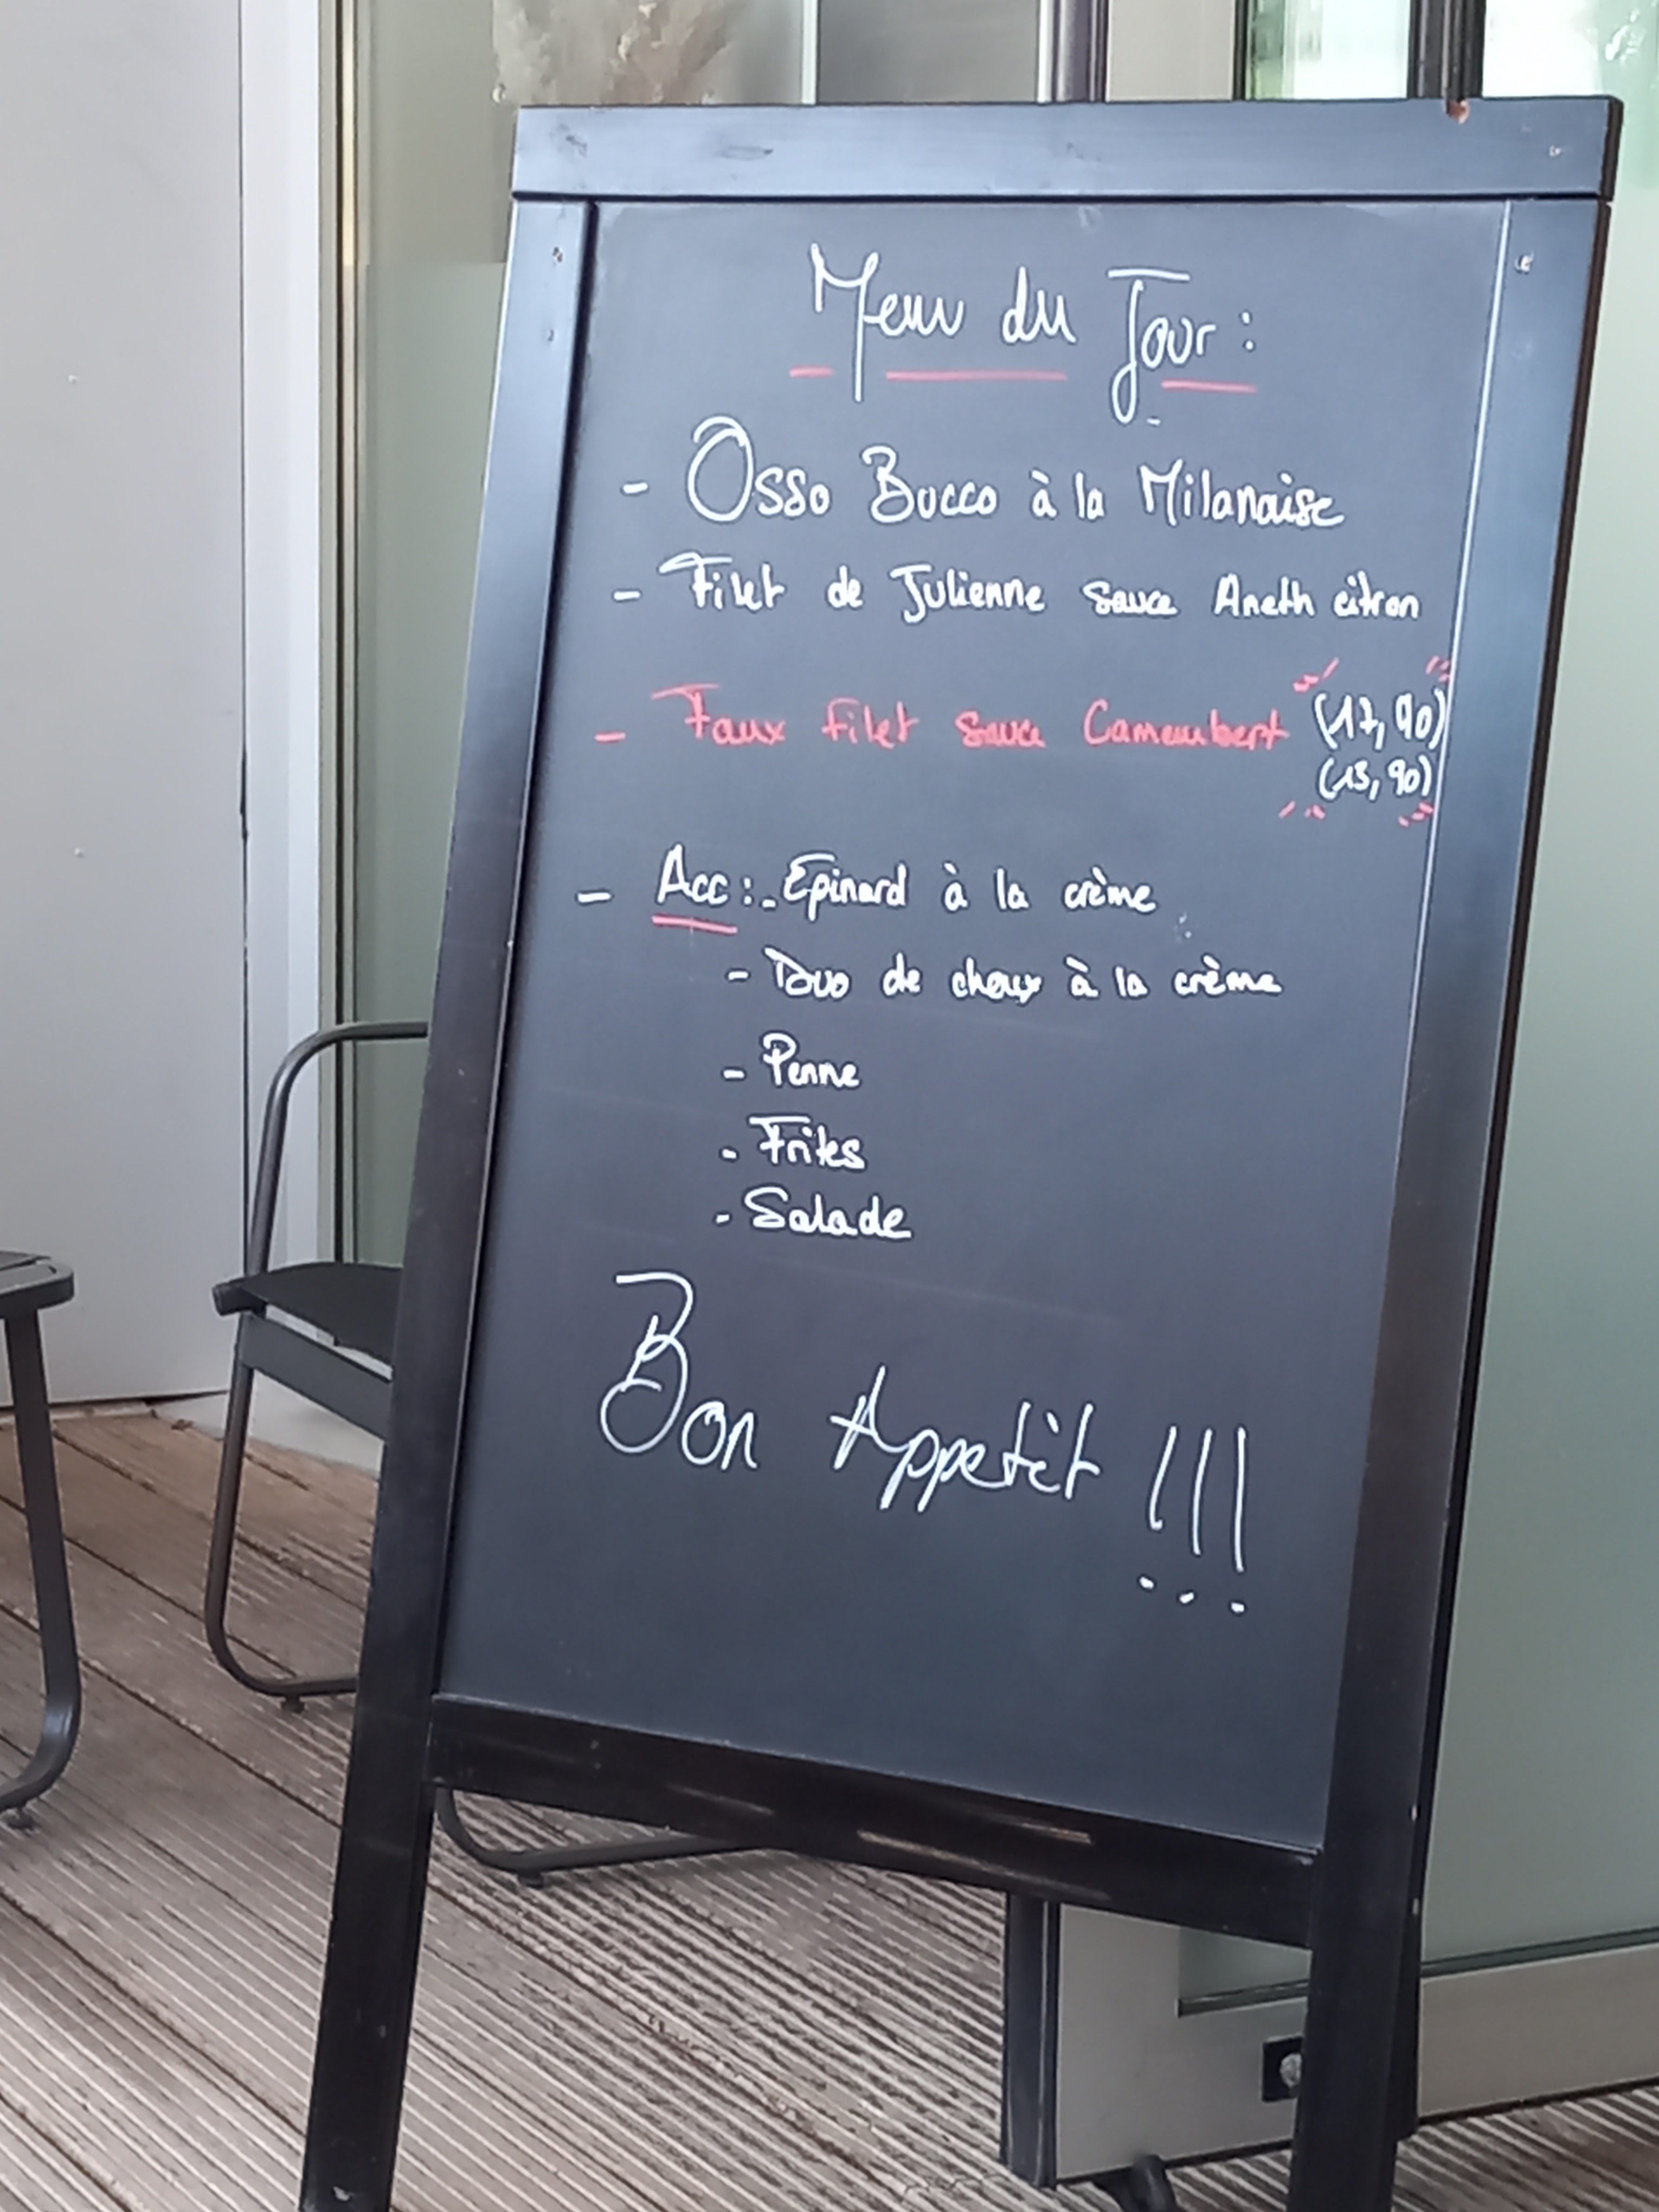 Menu du Jour :
- Osso Bucco à la Milanaise
- Filet de Julienne sauce Aneth citron
- Faux Filet sauce Camembert (17,90)
(13,90)
- Acc : - Epinard à la crème
- Duo de choux à la crème
- Penne
- Frites
- Salade
Bon Appetit !!!